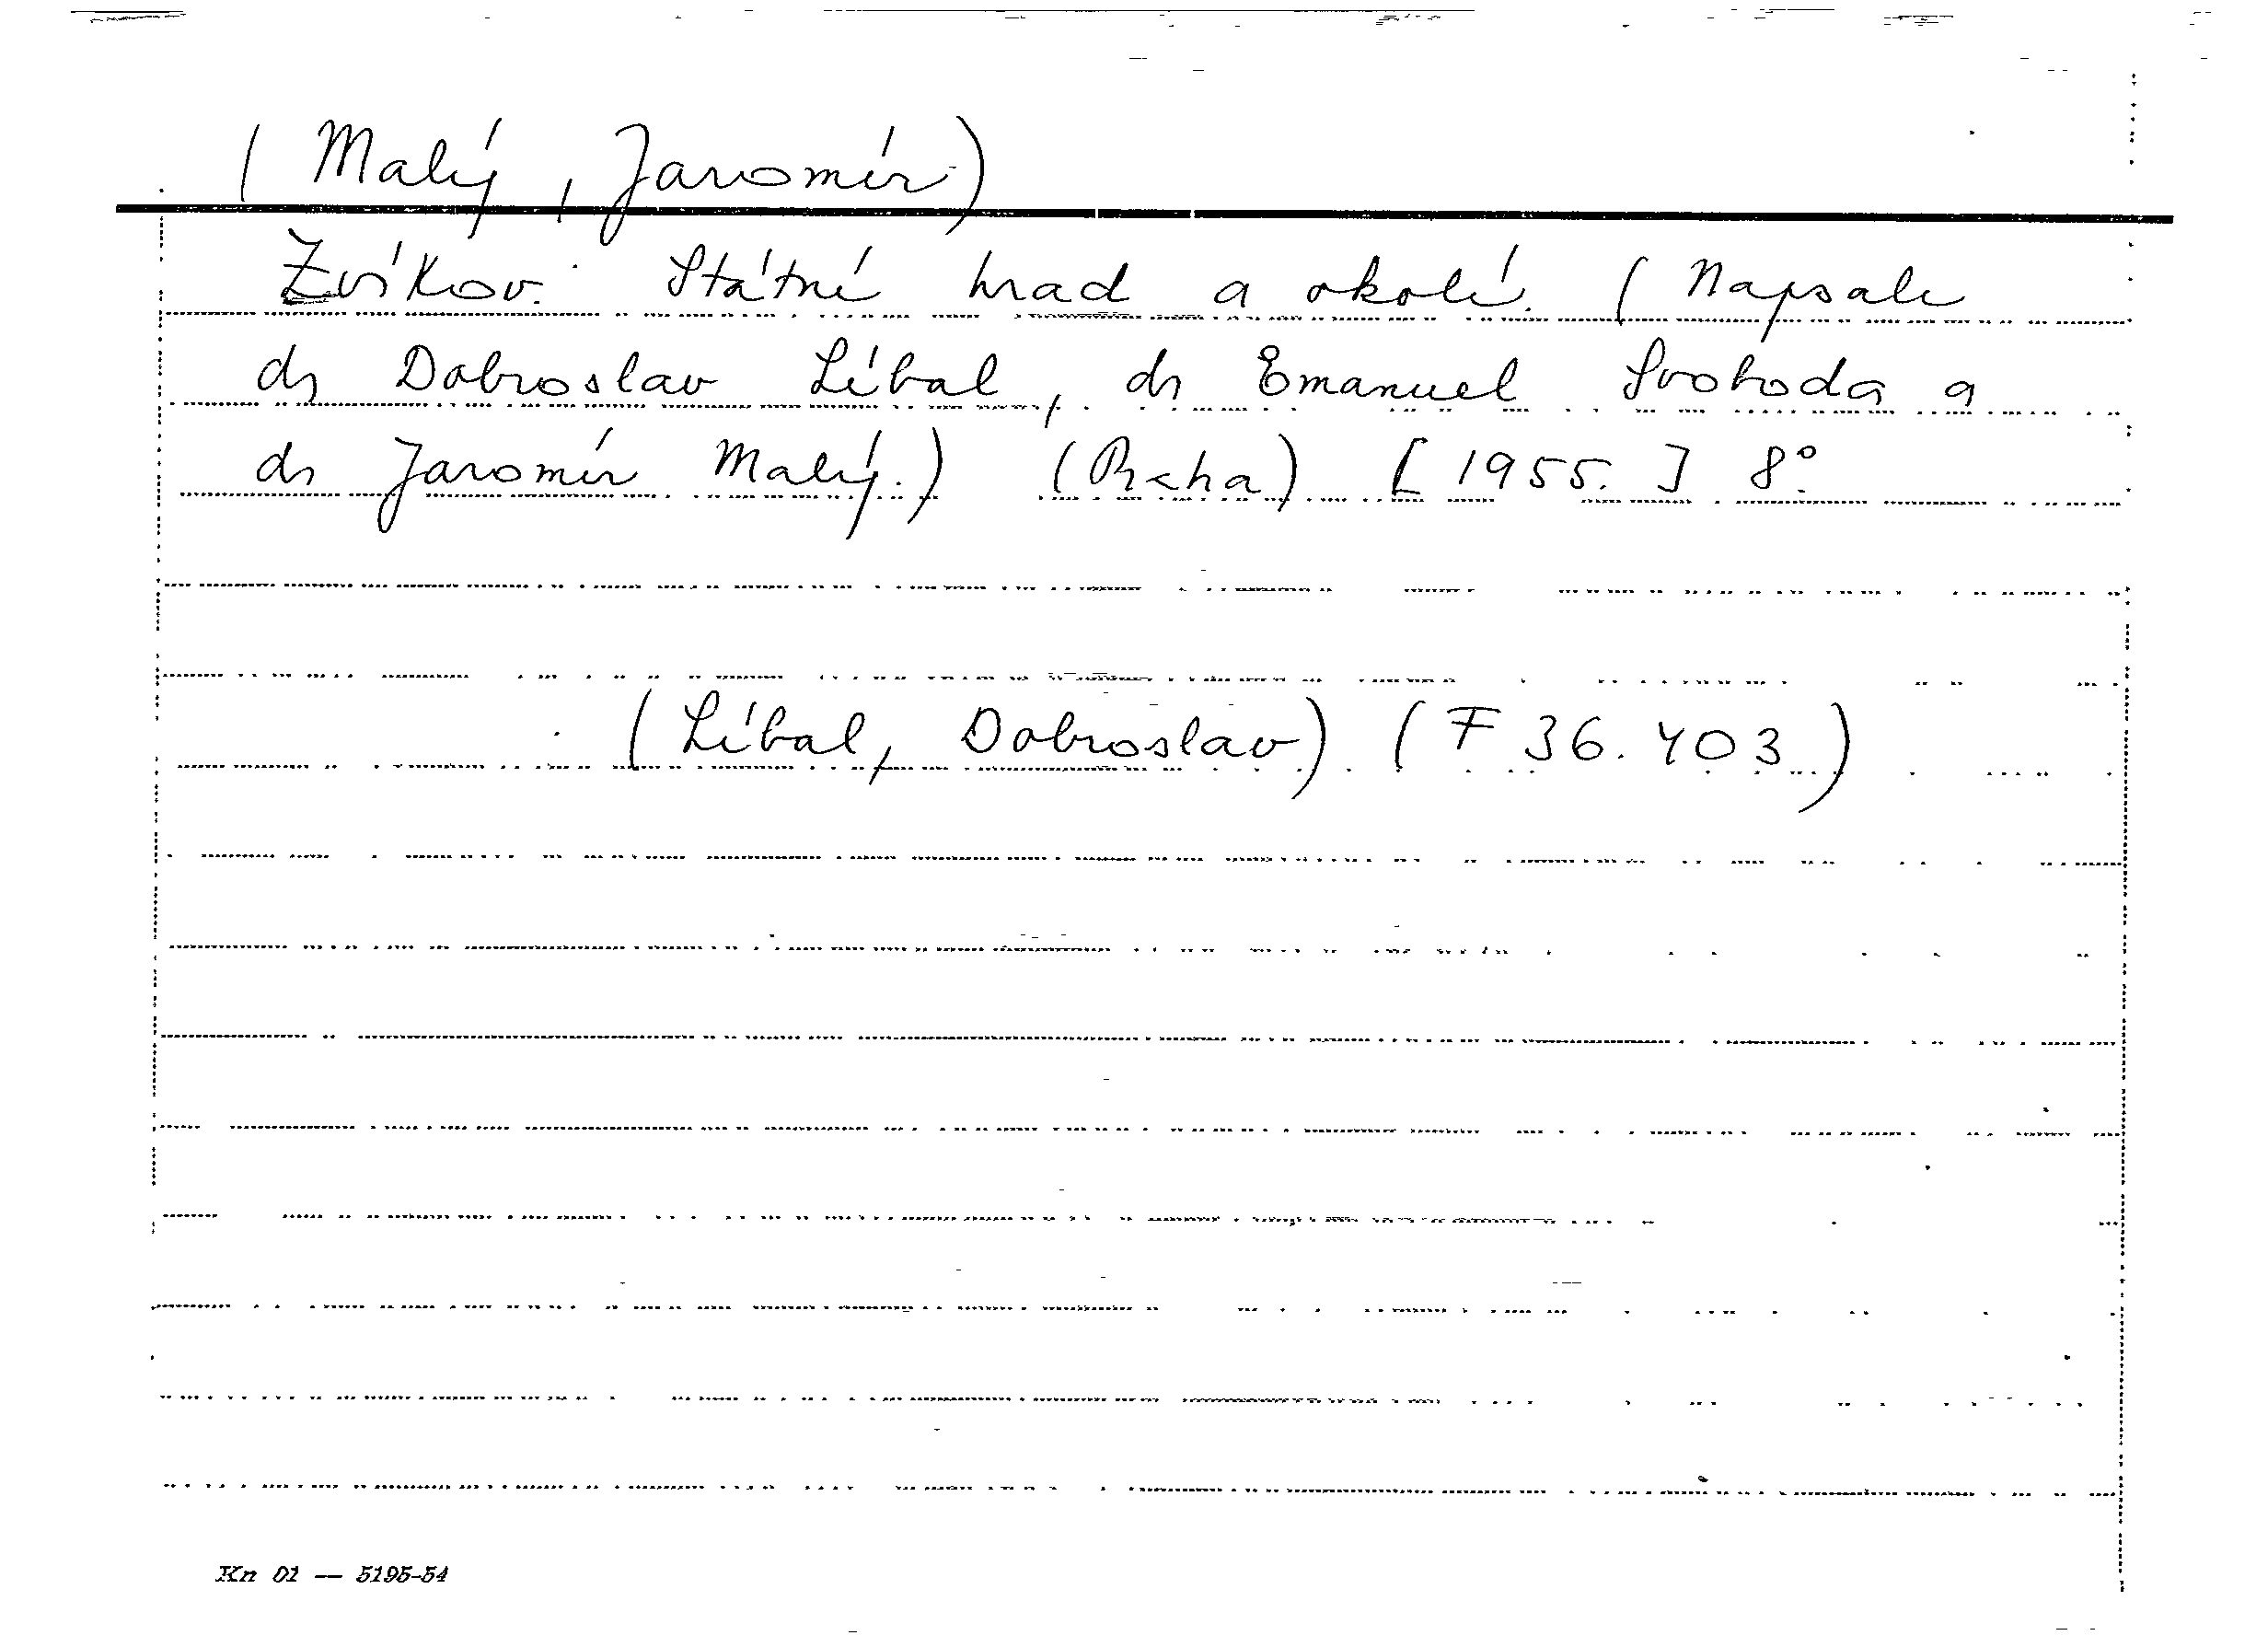 (Malý, Jaromír)
Zvíkov. Státní hrad a okolí. (Napsali
dr Dobroslav Líbal, dr Emanuel Svoboda a
dr Jaromír Malý.) (Praha) [1955.] 8°.
(Líbal, Dobroslav) (F 36.403)
Kn 01 — 5195-54